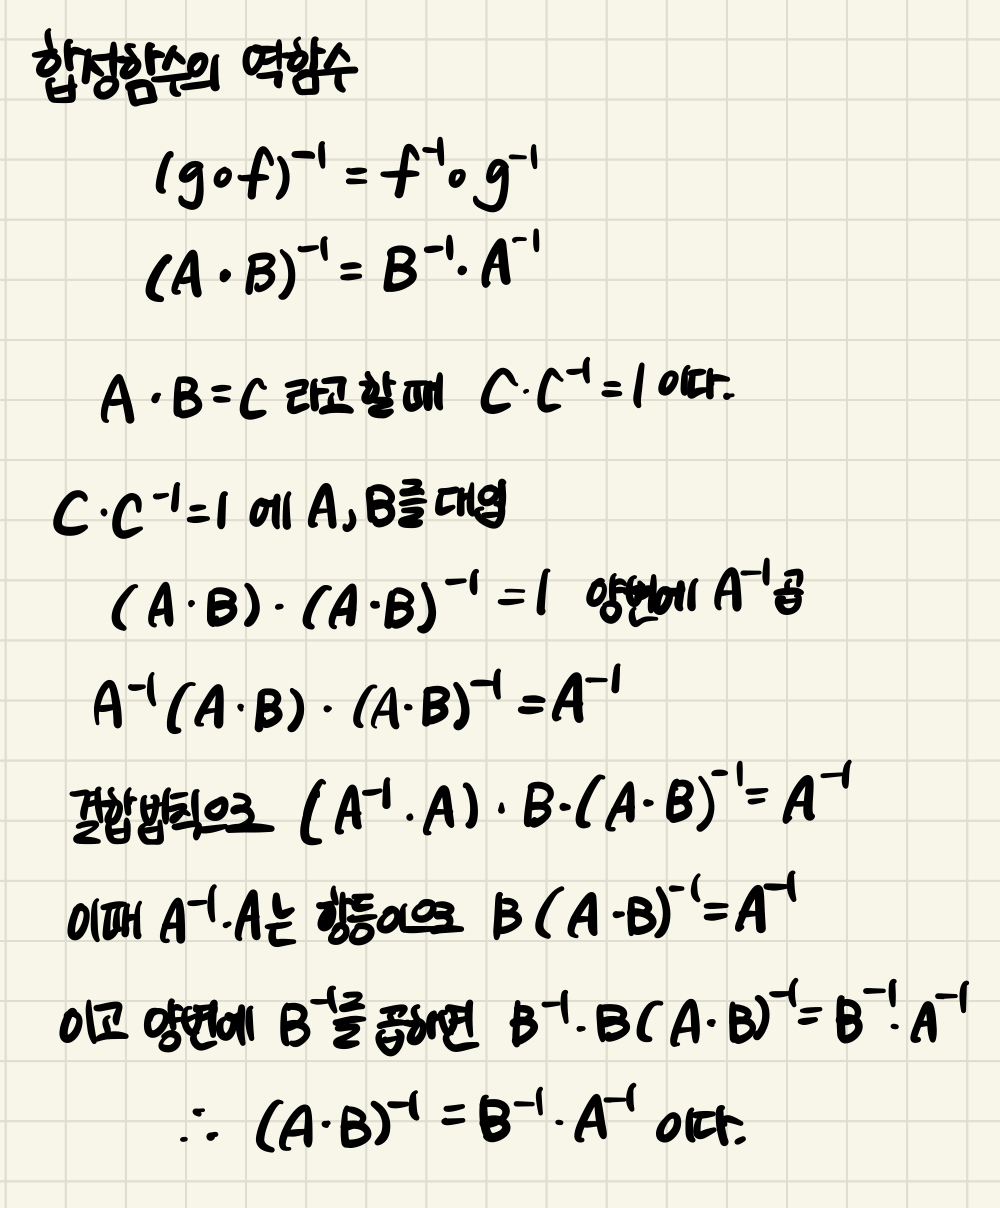 합성함수의 역함수
(g∘f)⁻¹ = f⁻¹∘g⁻¹
(A・B)⁻¹ = B⁻¹・A⁻¹
A・B=C 라고 할 때 C・C⁻¹=1 이다.
C・C⁻¹=1 에 A,B를 대입
(A・B)・(A・B)⁻¹=1 양변에 A⁻¹곱
A⁻¹(A・B)・(A・B)⁻¹=A⁻¹
결합법칙으로 (A⁻¹.A)・B・(A・B)⁻¹=A⁻¹
이때 A⁻¹.A는 항등이으로 B(A・B)⁻¹=A⁻¹
이고 양변에 B⁻¹를 곱하면 B⁻¹・B(A・B)⁻¹=B⁻¹・A⁻¹
∴ (A・B)⁻¹=B⁻¹・A⁻¹ 이다.